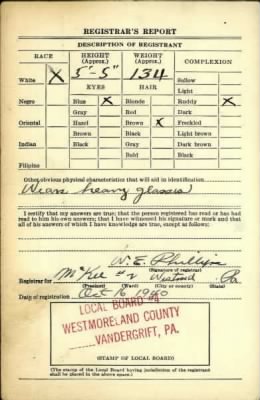 REGISTRAR'S REPORT
DESCRIPTION OF REGISTRANT
RACE HEIGHT (Approx.) WEIGHT (Approx.) COMPLEXION
White X 5'-5" 134 Sallow
EYES HAIR Light
Negro Blue X Blonde Ruddy X
Gray Red Dark
Oriental Hazel Brown X Freckled
Brown Black Light brown
Indian Black Gray Dark brown
Bald Black
Filipino
Other obvious physical characteristics that will aid in identification
Wears heavy glasses
I certify that my answers are true; that the person registered has read or has had
read to him his own answers; that I have witnessed his signature or mark and that
all of his answers of which I have knowledge are true, except as follows:
W. E. Phillips
(Signature of registrar)
Registrar for McKee #2 Westmd Pa
(Precinct) (Ward) (City or county) (State)
Date of registration Oct 16 1940
LOCAL BOARD #4
WESTMORELAND COUNTY
VANDERGRIFT, PA.
(STAMP OF LOCAL BOARD)
(The stamp of the Local Board having jurisdiction of the registrant
shall be placed in the above space.)